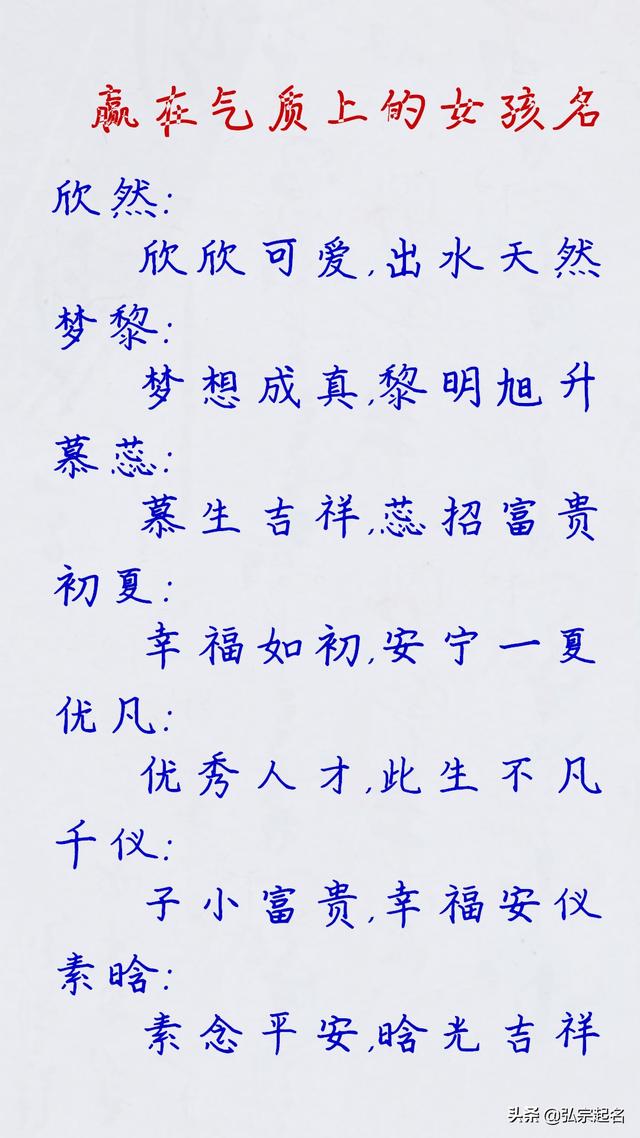 赢在气质上的女孩名
欣然:
欣欣可爱,出水天然
梦黎:
梦想成真,黎明旭升
慕蕊:
慕生吉祥,蕊招富贵
初夏:
幸福如初,安宁一夏
优凡:
优秀人才,此生不凡
千仪:
子小富贵,幸福安仪
素晗:
素念平安,晗光吉祥
头条 @弘宗起名